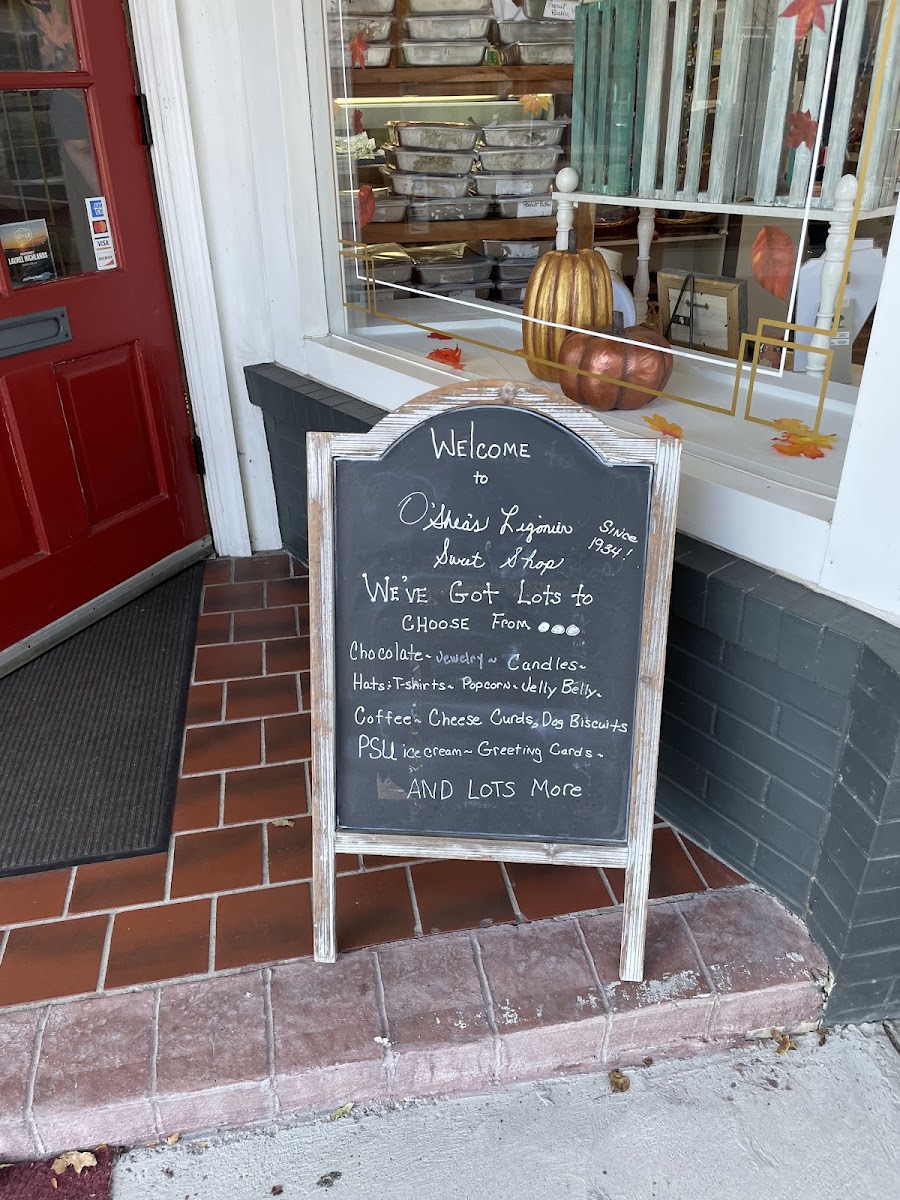 WELCOME
to
O'Shea's Ligonier
Sweet Shop
Since
1934!
WE'VE GOT LOTS to
CHOOSE FROM ...
Chocolate~ Jewelry~ Candles~
Hats; T-shirts~ Popcorn~ Jelly Belly~
Coffee~ Cheese Curds, Dog Biscuits
PSU ice cream~ Greeting Cards~
AND LOTS MORE
LAUREL HIGHLANDS
VISA
Peanut Butter